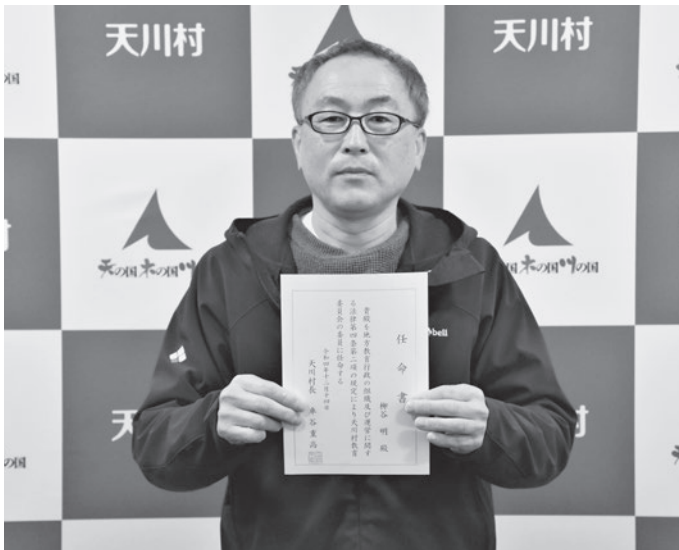 天川村
天川村
天の国 木の国 川の国
の国 木の国 川の国
任命書
柳谷 明 殿
貴殿を地方教育行政の組織及び運営に関す
る法律第四条第二項の規定により天川村教育
委員会の委員に任命する
令和四年十二月十四日
天川村長 車谷 重高
bell
村
天
村
の国